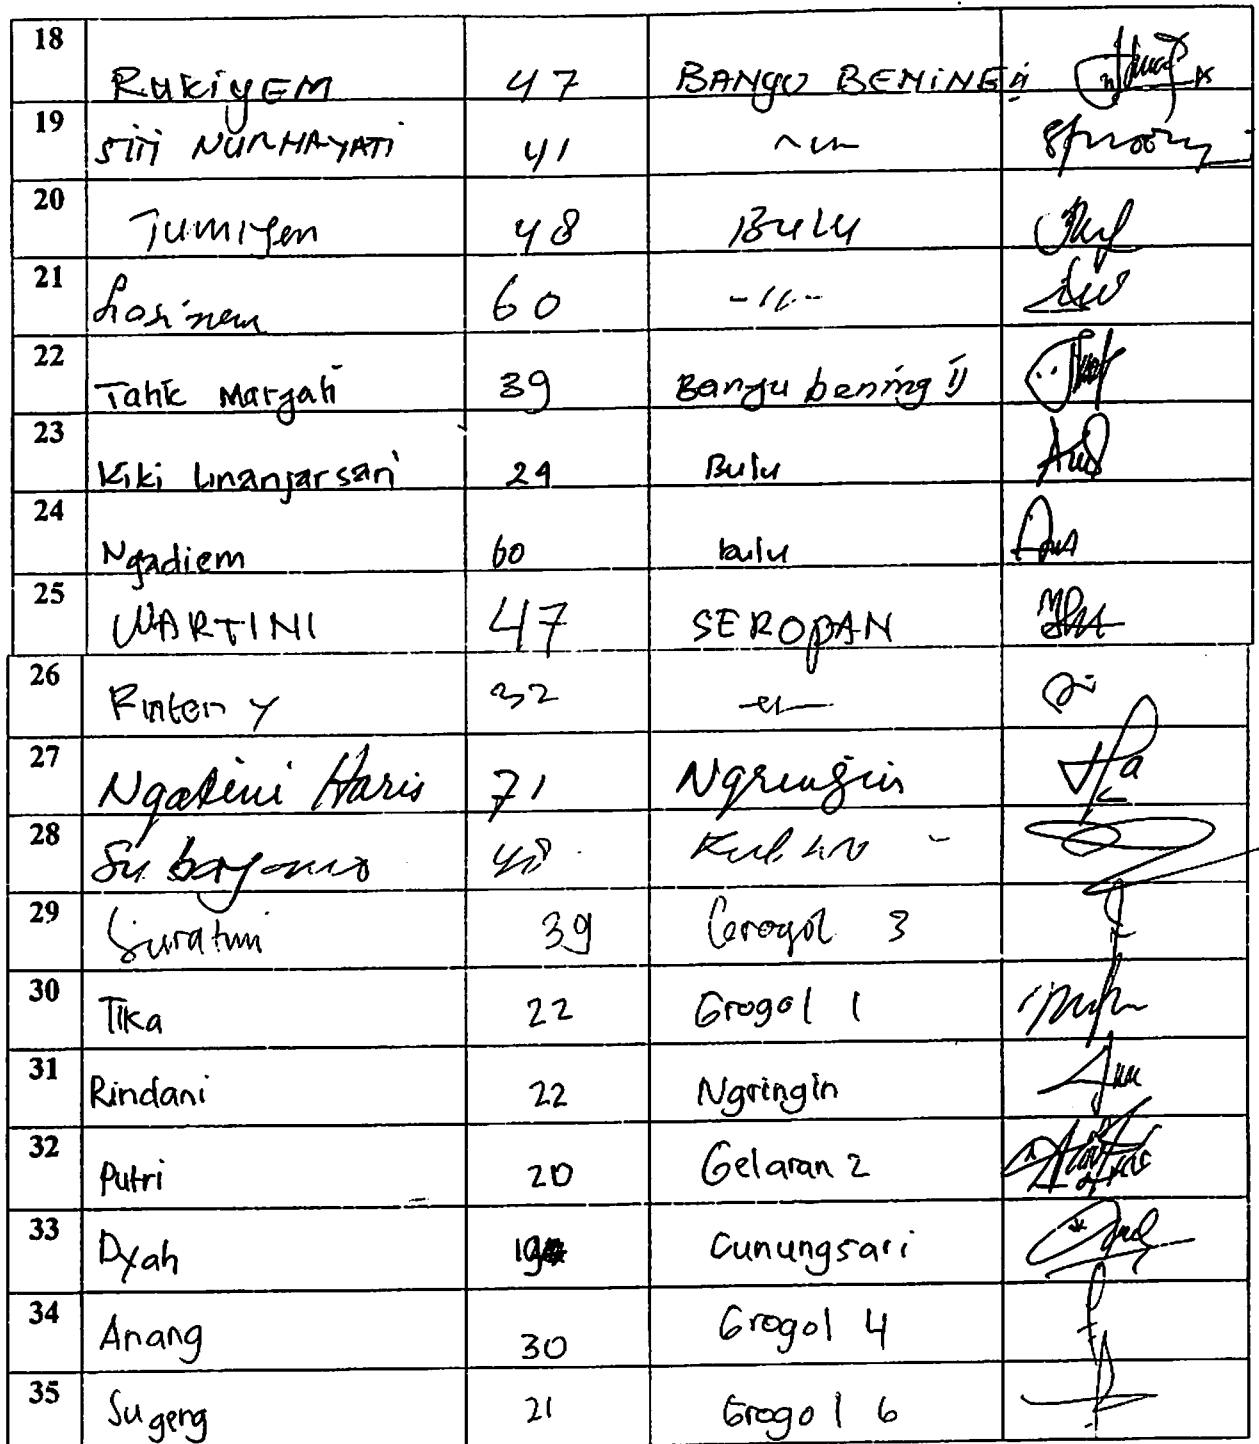 18 RUKIYEM 47 BANYU BENING ii
19 SITI NURHAYATI 41 -"-
20 Tumiyem 48 Bulu
21 60 -"-
22 Tatik Maryati 39 Banyu bening ij
23 Kiki Linanjarsari 29 Bulu
24 Ngadiem 60 bulu
25 WARTINI 47 SEROPAN
26 Rinten Y 32 -"-
27 Ngatini Haris 71 Ngringin
28 48
29 Suratmi 39 Grogol 3
30 Tika 22 Grogol 1
31 Rindani 22 Ngringin
32 Putri 20 Gelaran 2
33 Dyah 19 Gunungsari
34 Anang 30 Grogol 4
35 Sugeng 21 Grogol 6